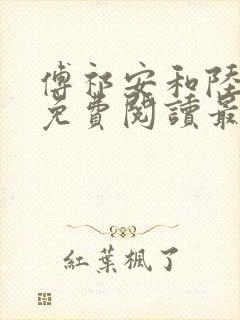 傅祁安和陸
免費閱讀最
紅葉楓了